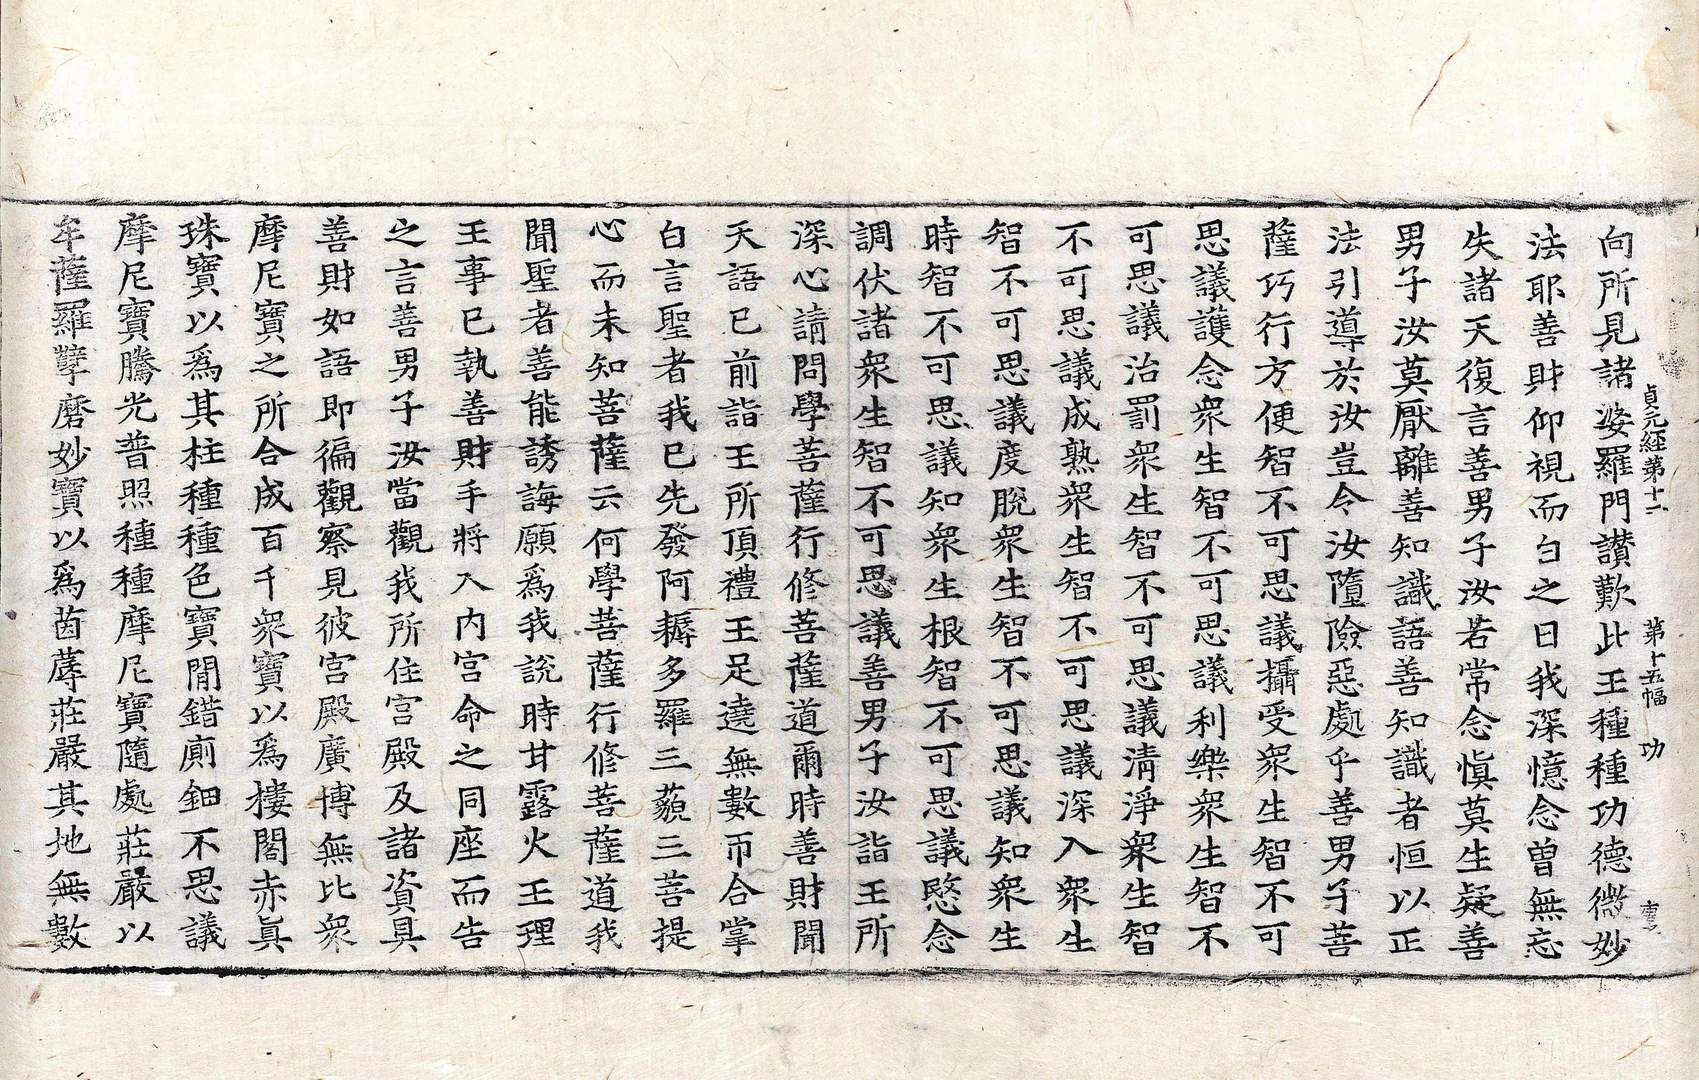 貞元經第十二　第十五幅　功
向所見諸婆羅門讚歎此王種種功德微妙
法耶善財仰視而白之曰我深憶念曾無忘
失諸天復言善男子汝若常念愼莫生疑善
男子汝莫厭離善知識語善知識者恒以正
法引導於汝豈令汝墮險惡處乎善男子菩
薩巧行方便智不可思議攝受衆生智不可
思議護念衆生智不可思議利樂衆生智不
可思議治罰衆生智不可思議淸淨衆生智
不可思議成熟衆生智不可思議深入衆生
智不可思議度脫衆生智不可思議知衆生
時智不可思議知衆生根智不可思議愍念
調伏諸衆生智不可思議善男子汝詣王所
深心請問學菩薩行修菩薩道爾時善財聞
天語已前詣王所頂禮王足遶無數帀合掌
白言聖者我已先發阿耨多羅三藐三菩提
心而未知菩薩云何學菩薩行修菩薩道我
聞聖者善能誘誨願爲我說時甘露火王理
王事已執善財手將入内宮命之同座而告
之言善男子汝當觀我所住宮殿及諸資具
善財如語即徧觀察見彼宮殿廣博無比衆
摩尼寶之所合成百千衆寶以爲樓閣赤眞
珠寶以爲其柱種種色寶閒錯廁鈿不思議
摩尼寶騰光普照種種摩尼寶隨處莊嚴以
牟薩羅孽磨妙寶以爲茵蓐莊嚴其地無數